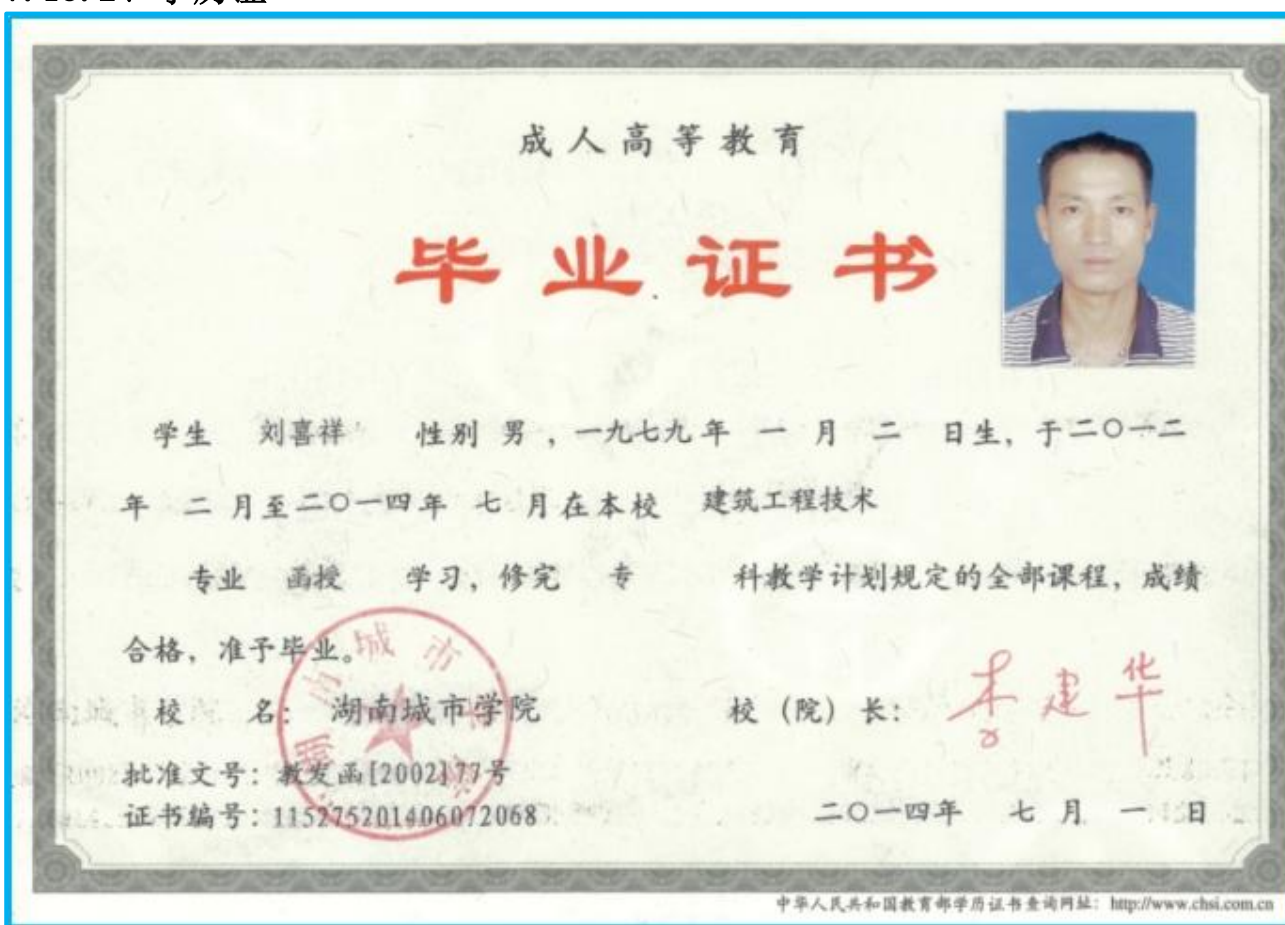 成人高等教育
毕业证书
学生 刘喜祥 性别 男，一九七九年 一 月 二 日生，于二〇一二
年 二 月至二〇一四年 七 月在本校 建筑工程技术
专业 函授 学习，修完 专 科教学计划规定的全部课程，成绩
合格，准予毕业。
校 名： 湖南城市学院 校（院）长： 李建华
批准文号：教发函[2002]77号
证书编号：115275201406072068 二〇一四年 七 月 一 日
中华人民共和国教育部学历证书查询网址：http://www.chsi.com.cn